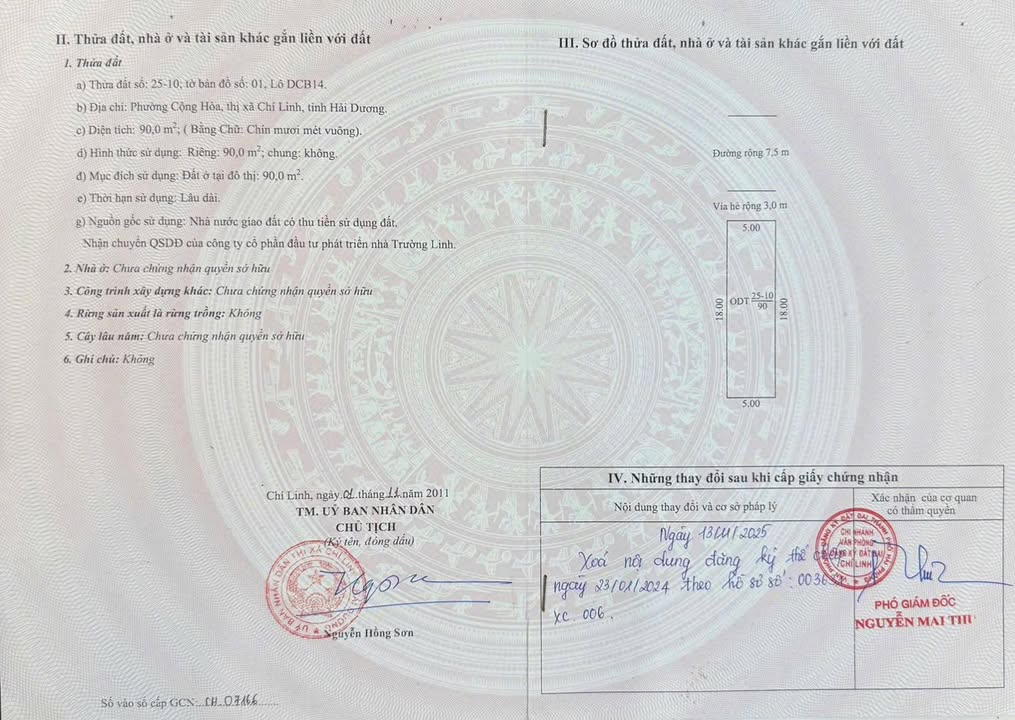 II. Thửa đất, nhà ở và tài sản khác gắn liền với đất
1. Thửa đất
a) Thửa đất số: 25-10; tờ bản đồ số: 01, Lô DCB14.
b) Địa chỉ: Phường Cộng Hòa, thị xã Chí Linh, tỉnh Hải Dương.
c) Diện tích: 90,0 m²; ( Bằng Chữ: Chín mươi mét vuông).
d) Hình thức sử dụng: Riêng: 90,0 m²; chung: không.
đ) Mục đích sử dụng: Đất ở tại đô thị: 90,0 m².
e) Thời hạn sử dụng: Lâu dài.
g) Nguồn gốc sử dụng: Nhà nước giao đất có thu tiền sử dụng đất.
Nhận chuyển QSDĐ của công ty cổ phần đầu tư phát triển nhà Trường Linh.
2. Nhà ở: Chưa chứng nhận quyền sở hữu
3. Công trình xây dựng khác: Chưa chứng nhận quyền sở hữu
4. Rừng sản xuất là rừng trồng: Không
5. Cây lâu năm: Chưa chứng nhận quyền sở hữu
6. Ghi chú: Không
Chí Linh, ngày 01 tháng 11 năm 2011
TM. UỶ BAN NHÂN DÂN
CHỦ TỊCH
(Ký tên, đóng dấu)
Nguyễn Hồng Sơn
Số vào sổ cấp GCN: CH.07166
III. Sơ đồ thửa đất, nhà ở và tài sản khác gắn liền với đất
Đường rộng 7,5 m
Vỉa hè rộng 3,0 m
5.00
18.00
ODT 25-10
90
18.00
5.00
IV. Những thay đổi sau khi cấp giấy chứng nhận
Nội dung thay đổi và cơ sở pháp lý
Xác nhận của cơ quan
có thẩm quyền
Ngày 13/11/2025
Xoá nội dung đăng ký thế chấp
ngày 23/01/2024 theo hồ sơ số: 0036
XC 006.
CHI NHÁNH
VĂN PHÒNG
ĐĂNG KÝ ĐẤT ĐAI
CHÍ LINH
PHÓ GIÁM ĐỐC
NGUYỄN MAI THI